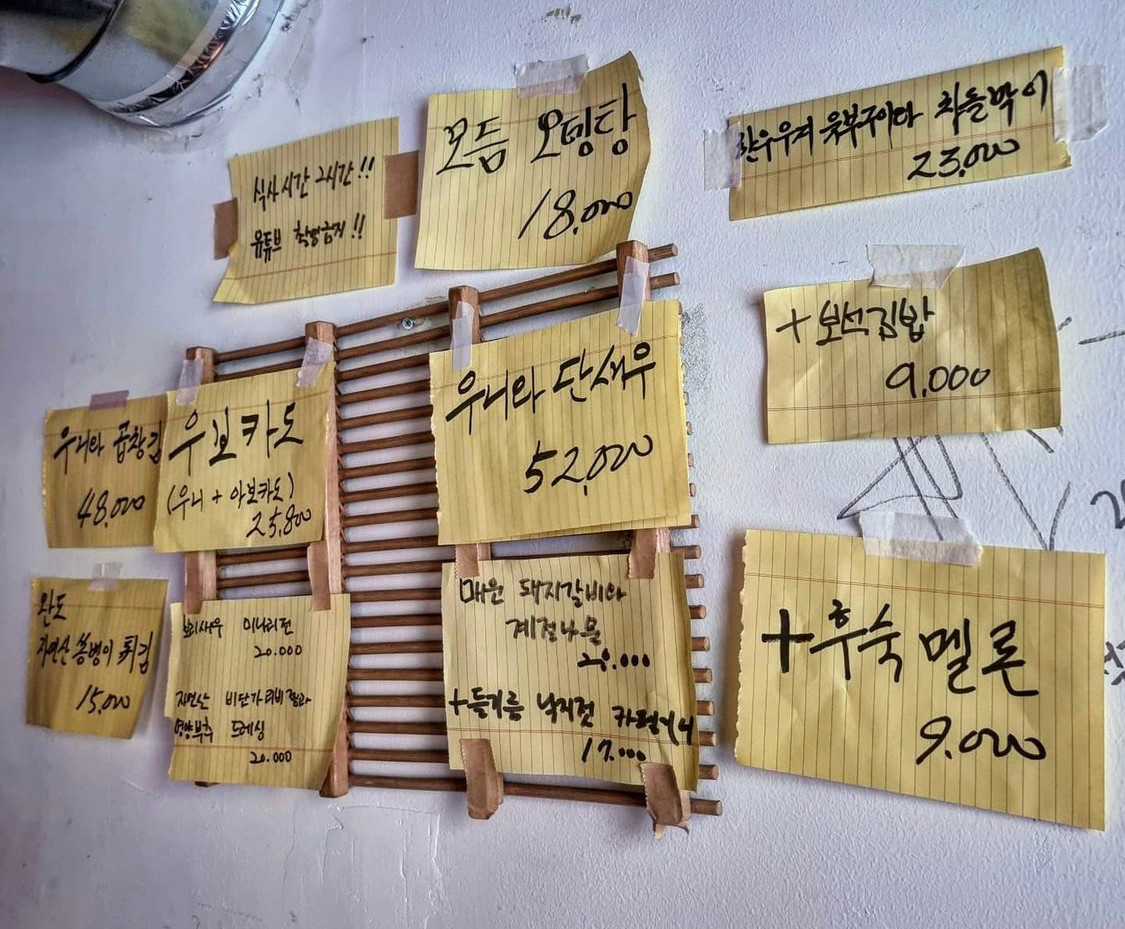 식사시간 2시간!!
유튜브 촬영금지!!
모듬 오뎅탕
18,000
차돌박이
23,000
+보석김밥
9,000
우니와 곱창김
48,000
우보카도
(우니 + 아보카도)
25,800
우니와 단새우
52,000
완도
자연산 골뱅이 튀김
15,000
보리새우 미나리전
20.000
자연산
영양부추 드레싱
20.000
매운 돼지갈비와
계절나물
20.000
+들기름 낙지젓 카펠리니
17.000
+후숙 멜론
9.000